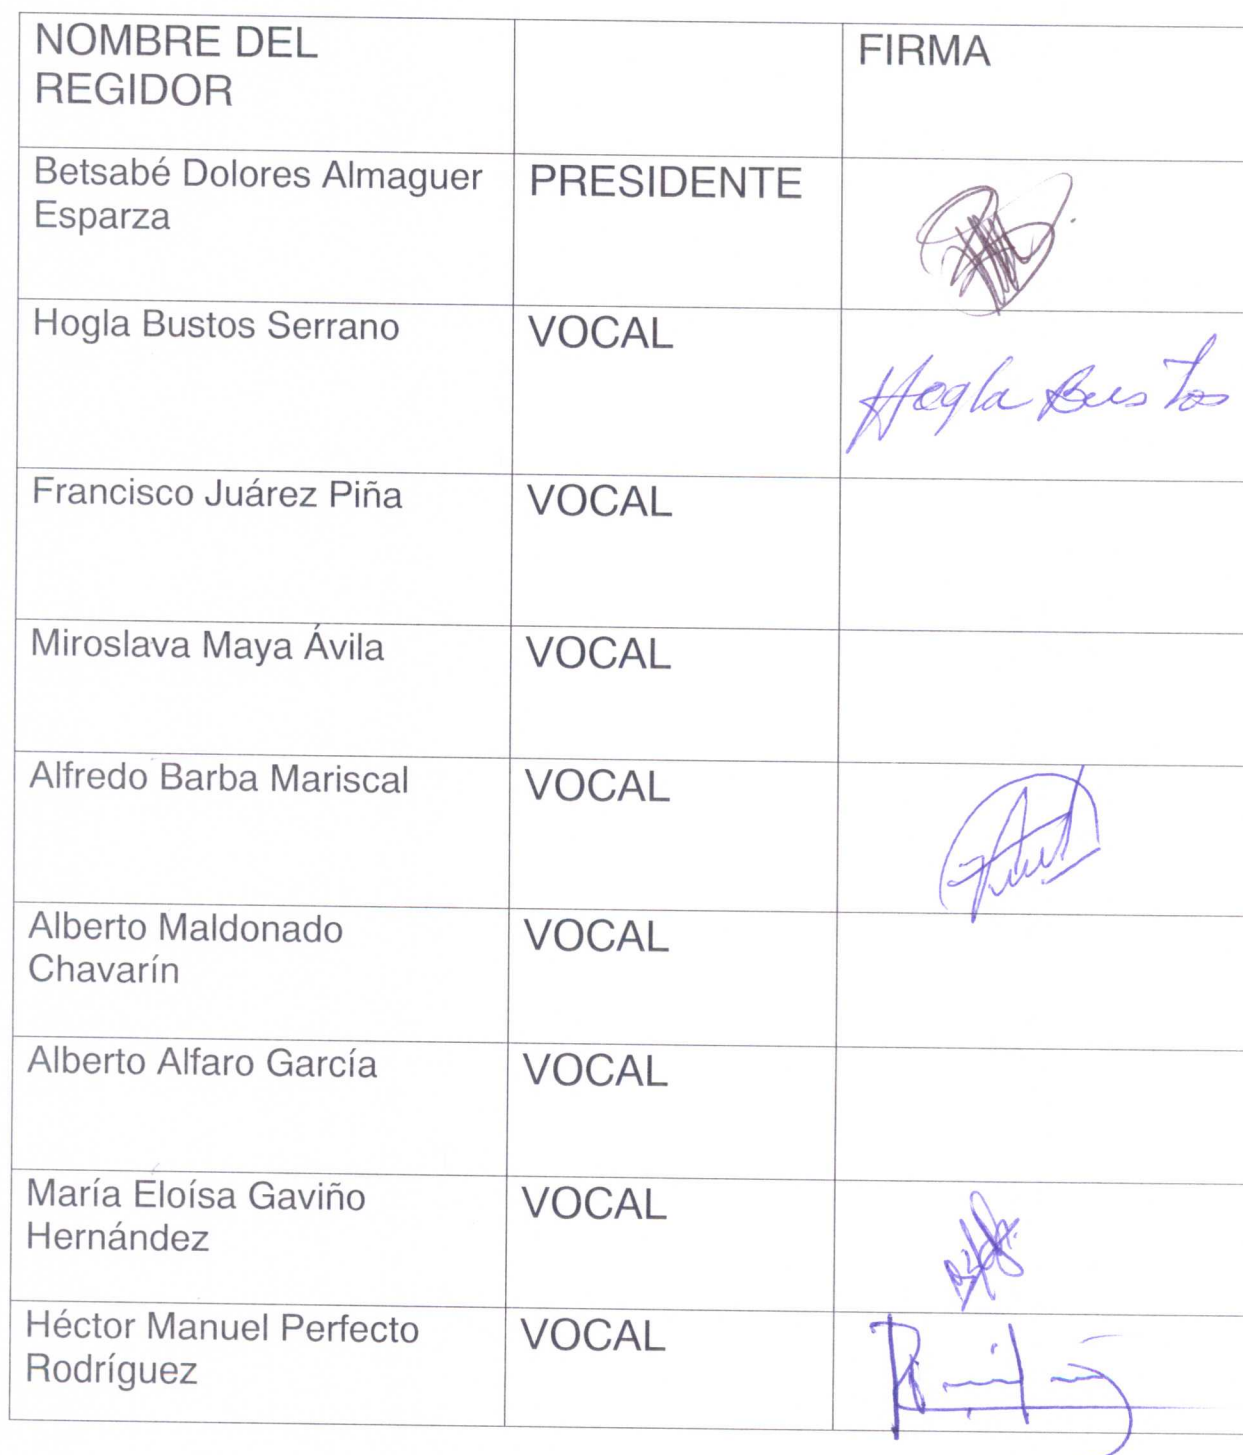 NOMBRE DEL
REGIDOR
FIRMA
Betsabé Dolores Almaguer
Esparza
PRESIDENTE
Hogla Bustos Serrano
VOCAL
Hogla Bustos
Francisco Juárez Piña
VOCAL
Miroslava Maya Ávila
VOCAL
Alfredo Barba Mariscal
VOCAL
Alberto Maldonado
Chavarín
VOCAL
Alberto Alfaro García
VOCAL
María Eloísa Gaviño
Hernández
VOCAL
Héctor Manuel Perfecto
Rodríguez
VOCAL